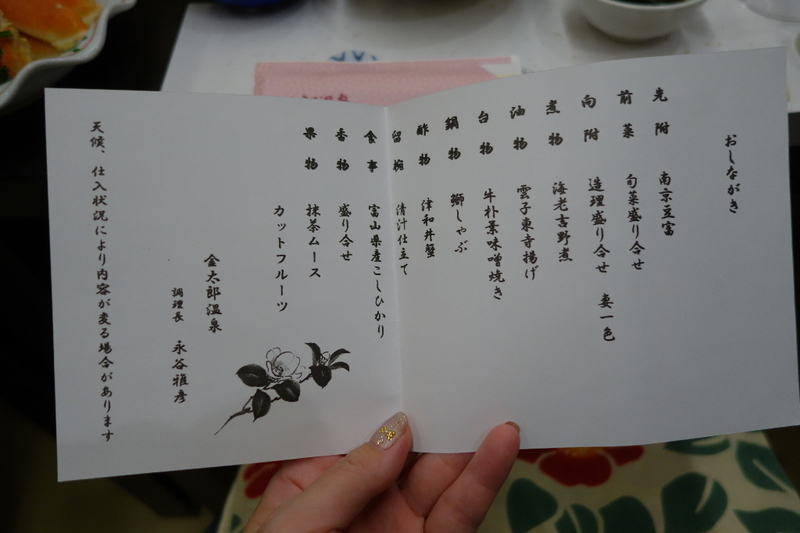 おしながき
先附 南京豆富
前菜 旬菜盛り合せ
向附 造理盛り合せ 妻一色
煮物 海老吉野煮
油物 雲子東寺揚げ
台物 牛朴葉味噌焼き
鍋物 鰤しゃぶ
酢物 津和井蟹
留椀 清汁仕立て
食事 富山県産こしひかり
香物 盛り合せ
果物 抹茶ムース
カットフルーツ
金太郎温泉
調理長 永谷雅彦
天候、仕入状況により内容が変る場合があります